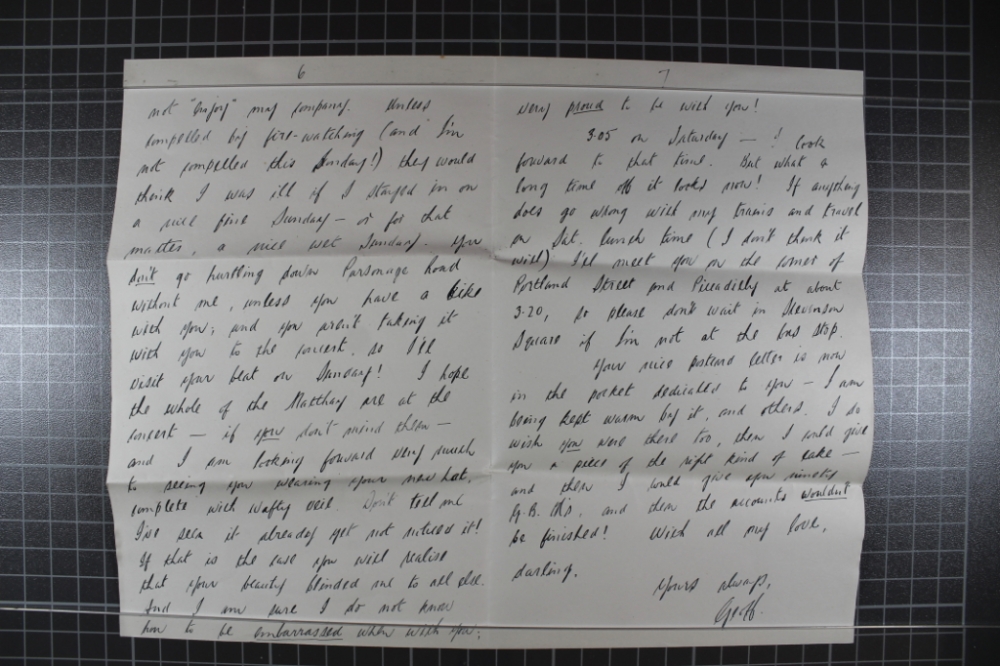 6
not "enjoy" my company. Unless
compelled by fire-watching (and I'm
not compelled this Sunday!) they would
think I was ill if I stayed in on
a nice fine Sunday - or for that
matter, a nice wet Sunday. You
don't go hurtling down Parsonage Road
without me, unless you have a bike
with you; and you aren't taking it
with you to the concert, so I'll
visit your beat on Sunday! I hope
the whole of the Matthay are at the
concert — if you don't mind them —
and I am looking forward very much
to seeing you wearing your new hat,
complete with wafty veil. Don't tell me
I've seen it already yet not noticed it!
If that is the case you will realise
that your beauty blinded me to all else.
And I am sure I do not know
how to be embarrassed when with you;
7
very proud to be with you!
3.05 on Saturday — I look
forward to that time. But what a
long time off it looks now! If anything
does go wrong with my trains and travel
on Sat. lunch time (I don't think it
will) I'll meet you on the corner of
Portland Street and Piccadilly at about
3.20, so please don't wait in Stevenson
Square if I'm not at the bus stop.
Your nice postcard letter is now
in the pocket dedicated to you — I am
being kept warm by it, and others. I do
wish you were there too, then I could give
you a piece of the right kind of cake —
and then I would give you ninety
and then the accounts wouldn't
be finished! With all my love,
darling.
Yours always,
Geoff.